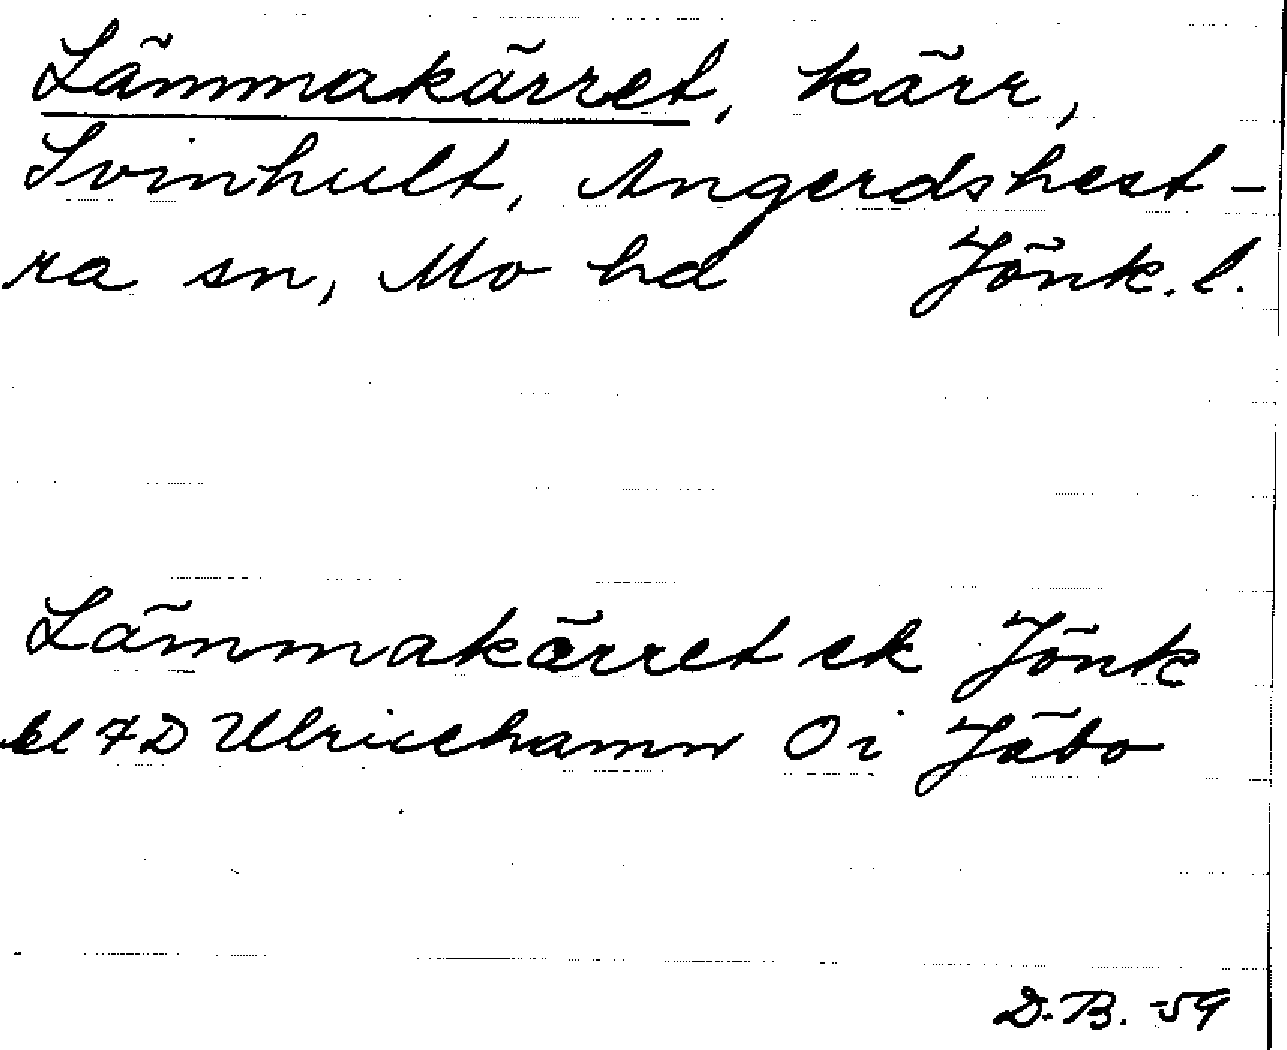 Lämmakärret, kärr,
Svinhult, Angerdshest-
ra sn, Mo hd Jönk. l.
Lämmakärret ek Jönk
bl 7D Ulricehamn Oi Jäbo
D.B. -59